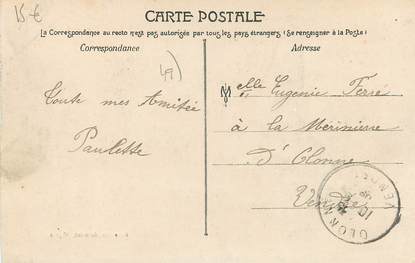 15 €
CARTE POSTALE
La Correspondance au recto n'est pas autorisée par tous les pays étrangers (Se renseigner à la Poste)
Correspondance
Adresse
49)
Toute mes Amitée
Paulette
Melle Eugenie Ferré
à la Mérinière
d'Olonne
Vendée
OLONNE
VENDÉE